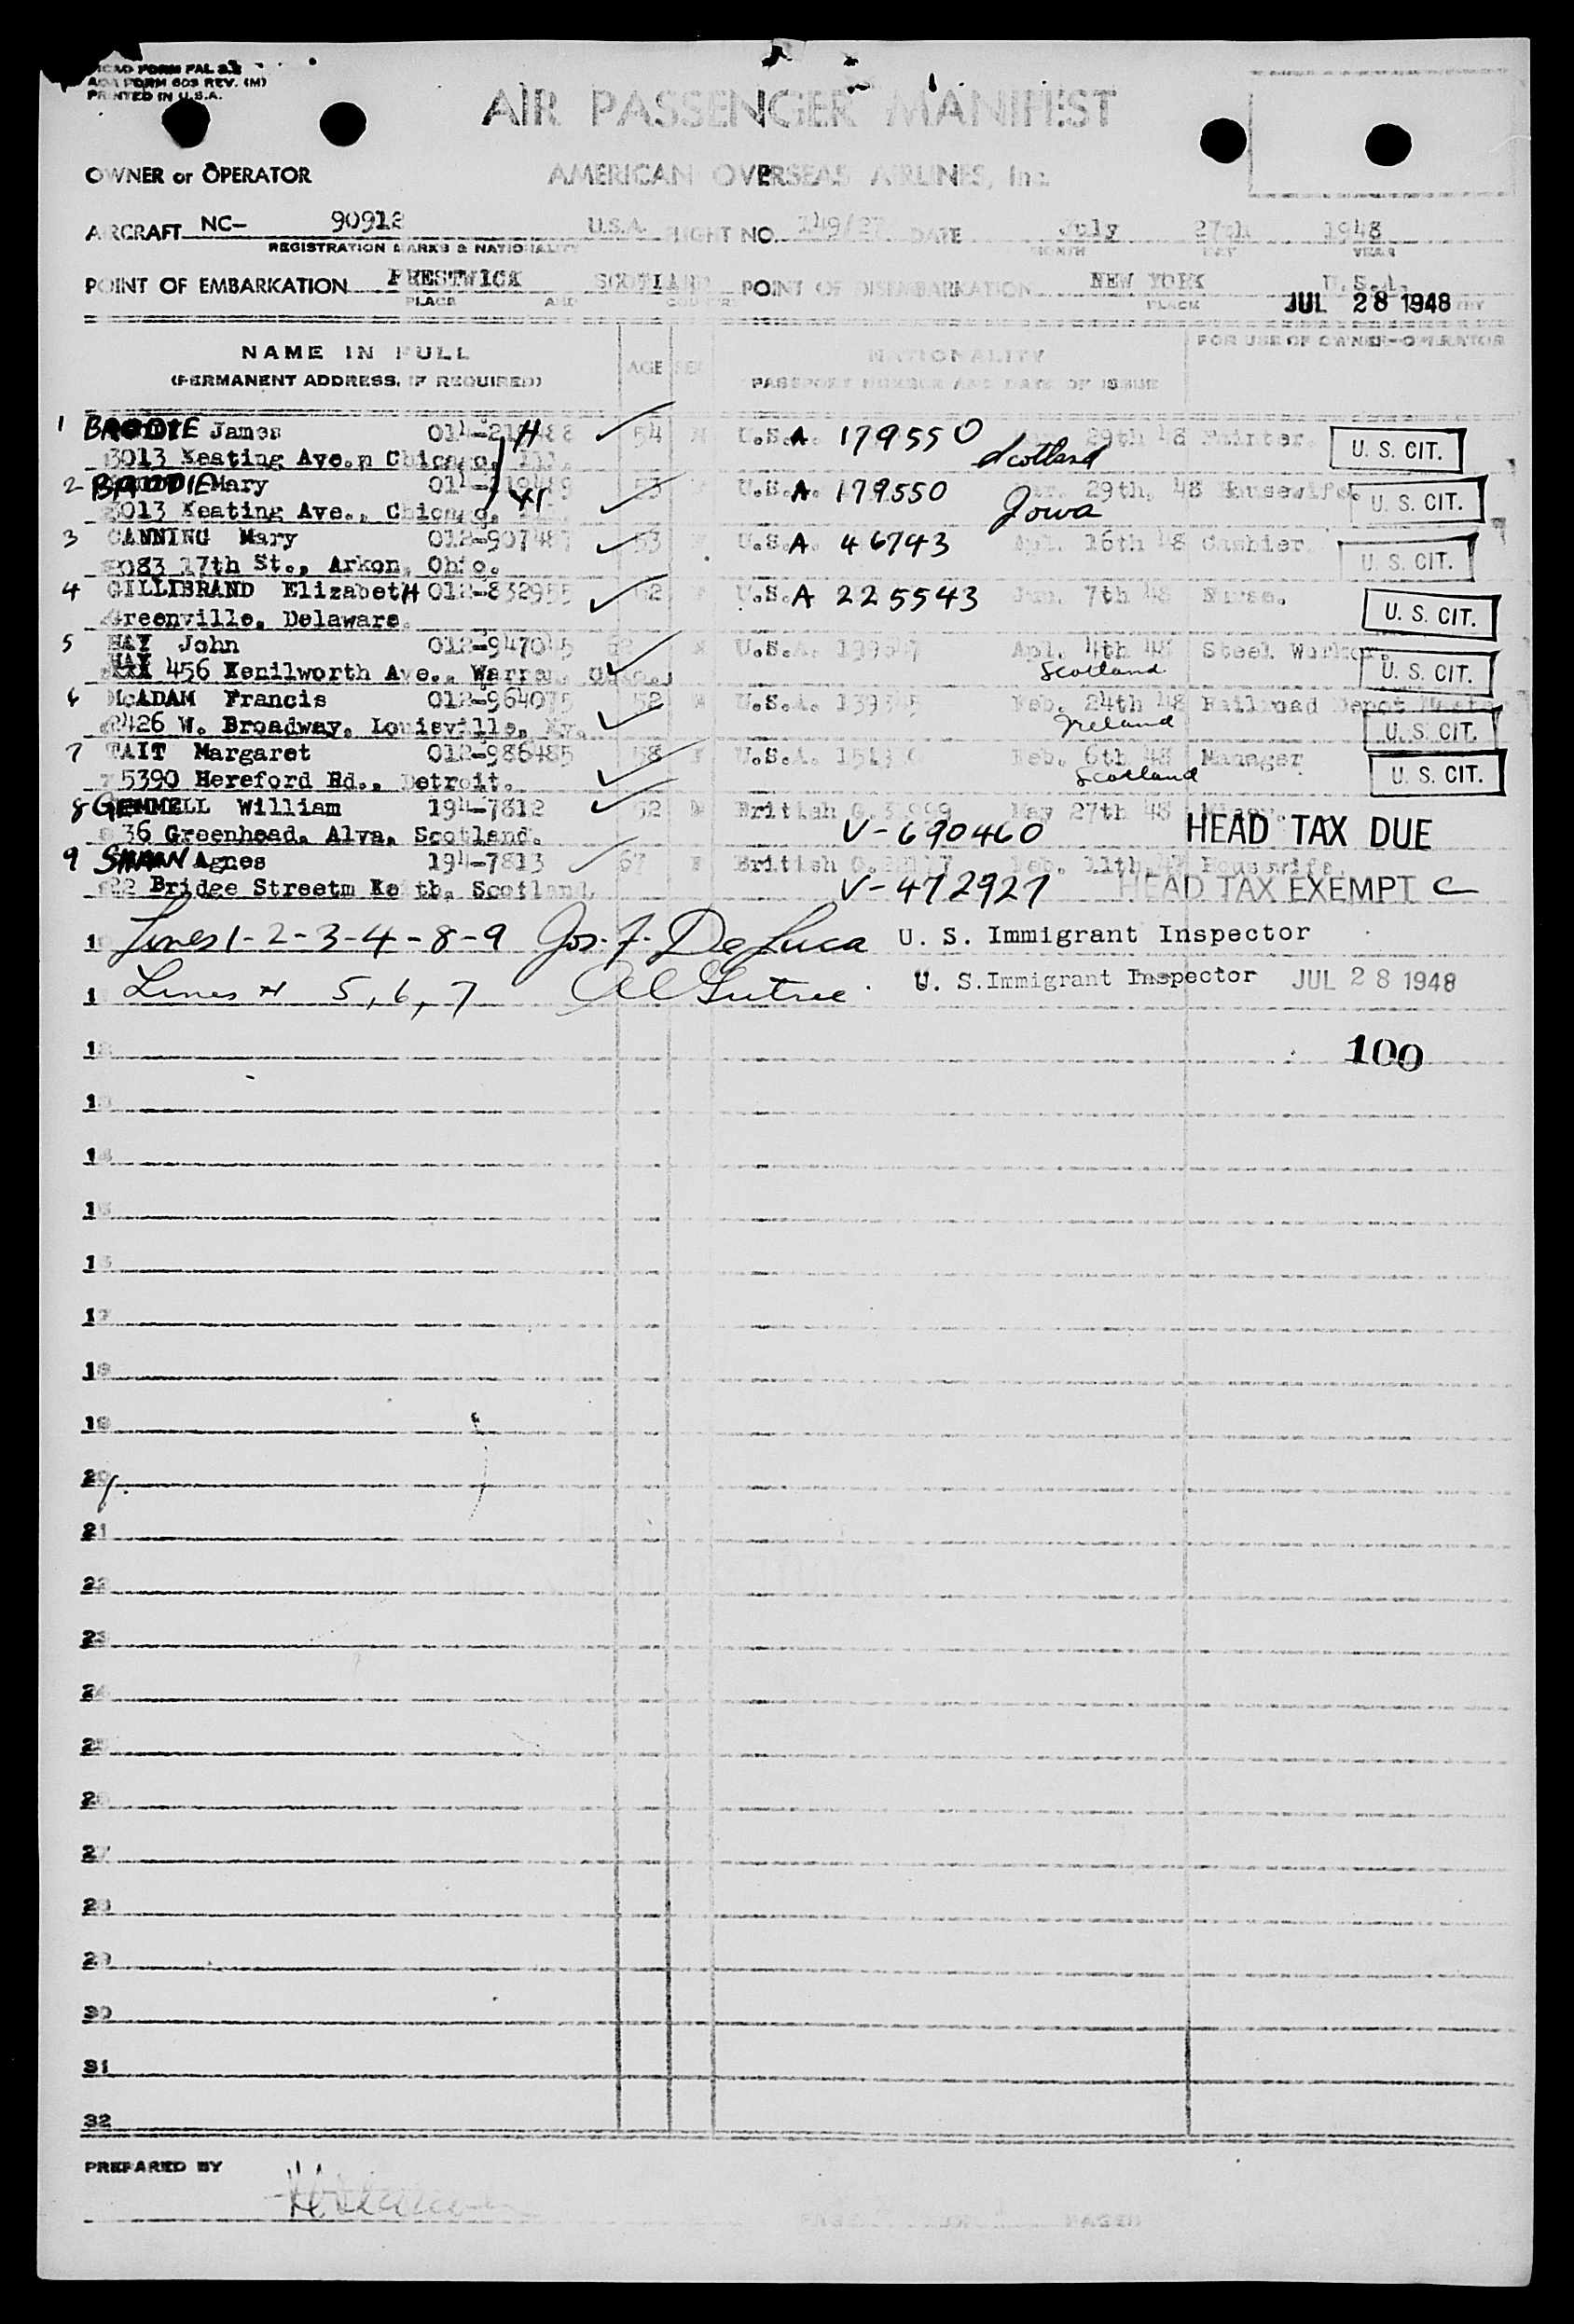 ICAO FORM PAL 2.2
AOA FORM 603 REV. (M)
PRINTED IN U.S.A.
AIR PASSENGER MANIFEST
OWNER or OPERATOR AMERICAN OVERSEAS AIRLINES, Inc.
AIRCRAFT NC- 90912 U.S.A. FLIGHT NO. DATE July 27th 1948
REGISTRATION MARKS & NATIONALITY MONTH DAY YEAR
POINT OF EMBARKATION PRESTWICK SCOTLAND POINT OF DISEMBARKATION NEW YORK U.S.A.
PLACE AND COUNTRY PLACE
JUL 28 1948
NAME IN FULL AGE SEX NATIONALITY FOR USE OF OWNER-OPERATOR
(PERMANENT ADDRESS, IF REQUIRED) PASSPORT NUMBER AND DATE OF ISSUE
1 BRODIE James H ✓ 54 M U.S.A. 179550 29th 48 Painter. U. S. CIT.
3013 Keating Ave.n Chicago, Ill. Scotland
2 BRODIE Mary ✓ 53 U.S.A. 179550 Mar. 29th, 48 Housewife. U. S. CIT.
3013 Keating Ave., Chicago, Iowa
3 CANNING Mary ✓ 53 U.S.A. 46743 Apl. 16th 48 Cashier. U. S. CIT.
17th St., Arkon, Ohio.
4 GILLIBRAND ElizabetH 012-832955 ✓ U.S.A 225543 Jun. 7th 48 Nurse. U. S. CIT.
Greenville, Delaware.
5 HAY John 012-947045 ✓ M U.S.A. Apl. 4th 48 Steel Worker. U. S. CIT.
456 Kenilworth Ave., Warren, Scotland
6 McADAM Francis 012-964075 ✓ 52 M U.S.A. Feb. 24th 48 Railroad Depot U. S. CIT.
2426 W. Broadway, Louisville, Ky. Ireland
7 TAIT Margaret 012-986485 ✓ 58 F U.S.A. Feb. 6th 48 Manager U. S. CIT.
15390 Hereford Rd., Detroit. Scotland
8 GEMMELL William 194-7812 ✓ 52 M British May 27th 48
36 Greenhead, Alva, Scotland. V-690460 HEAD TAX DUE
9 Agnes 194-7813 ✓ 67 F British Feb. 11th, Housewife.
22 Bridge Streetm Keith, Scotland. V-472927 HEAD TAX EXEMPT C
10 Lines 1-2-3-4-8-9 Jos. F. DeLuca U. S. Immigrant Inspector
1 Lines 5, 6, 7 U. S.Immigrant Inspector JUL 28 1948
12 100
13
14
15
16
17
18
19
20
21
22
23
24
25
26
27
28
29
30
31
32
PREPARED BY